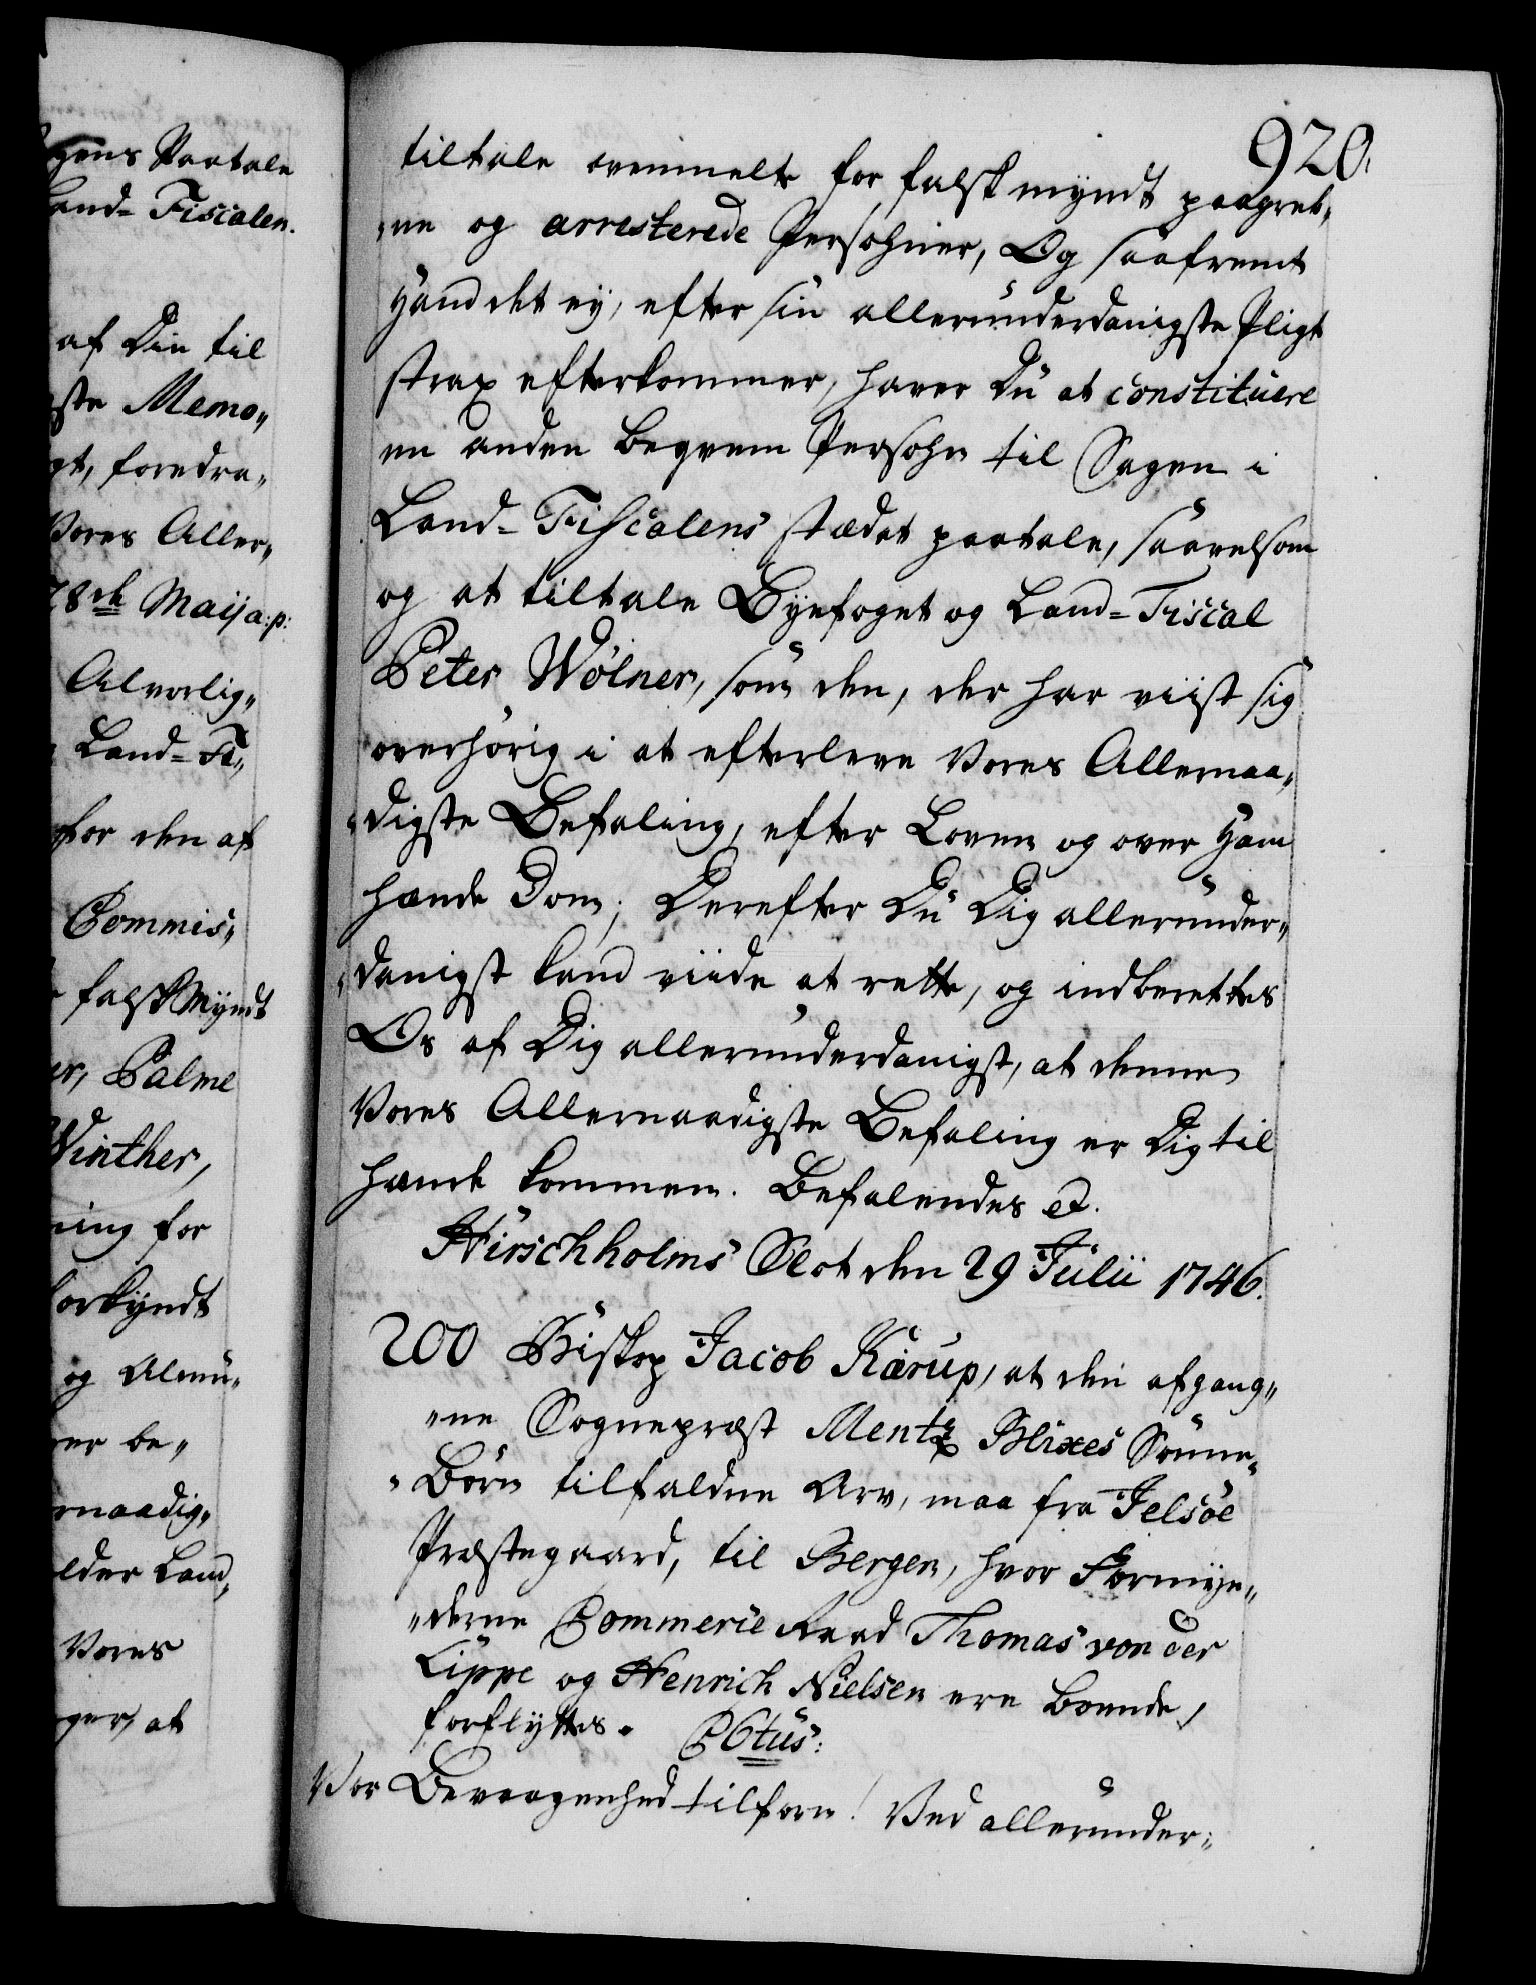 gens Paatale
Land= Fiscalen.
af Din til
ste Memo„
gt, foredra„
Vores Aller„
28de Maij a: p:
Alvorlig„
Land=Fi„
for den af
Commis„
falsk Mÿndt
er, Palme
Winther,
ning for
forkÿndt
og Almu„
er be„
rnaadig„
elder Land„
Vores
ger, at
920.
tiltale ommelte for falsk mÿndt paagreb„
„ne og arresterede Persohner, Og saafremt
Hand det ej, efter sin allerunderdanigste Pligt
strax efterkommer, haver Du at constituere
en anden beqvem Persohn til Sagen i
Land=Fiscalens stædet paatale, saavelsom
og at tiltale Bÿefoget og Land=Fiscal
Peter Wölner, som den, der har viist sig
overhörig i at efterleve Vores Allernaa„
„digste Befaling, efter Loven og over Ham
hænde Dom; Derefter Du Dig allerunder„
„danigst kand viide at rette, og indberettes
Os af Dig allerunderdanigst, at denne
Vores Allernaadigste Befaling er Dig til
hænde kommen. Befalendes et.
Hirschholms Slot den 29 Julii 1746.
200 Biskop Jacob Kærup, at den afgang„
„ne Sognepræst Mentz Blixes Sönne„
„Börn tilfaldne Arv, maa fra Jelsöe
Præstegaard, til Bergen, hvor Formÿn„
„derne Commerce Raad Thomas von der
Lippe og Henrich Nielsen ere boende,
forflÿttes. CC6tus:
Vor Bevaagenhed tilforn! Ved allerunder„